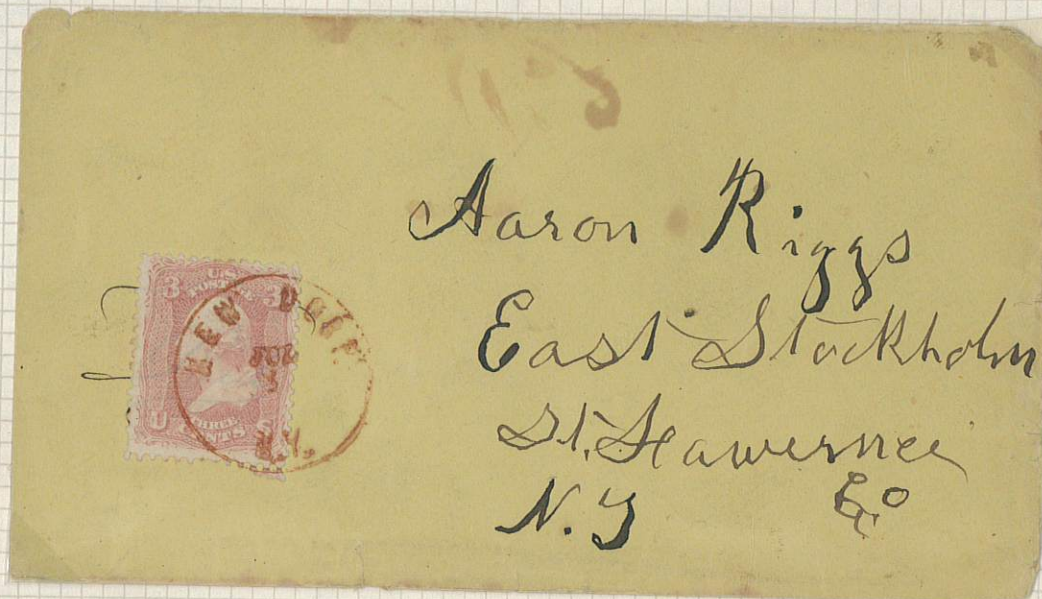 Aaron Riggs
East Stockholm
St. Lawernce
Co
N.Y
U.S.
POSTAGE
3 3
THREE
CENTS
U S
NEW
N.Y.